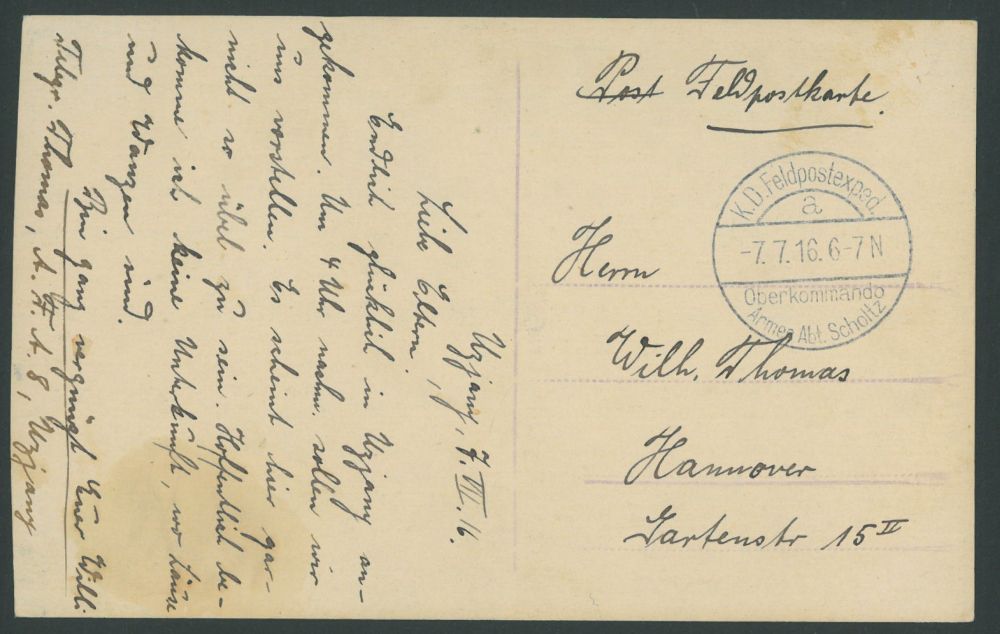 Post Feldpostkarte.
K.D. Feldpostexped.
a
-7.7.16. 6-7 N
Oberkommando
Armee Abt. Scholtz
Herrn
Wilh. Thomas
Hannover
Gartenstr 15 II
Uzjany, 7. VII. 16.
Liebe Eltern,
Endlich glücklich in Uzjany an-
gekommen. Um 4 Uhr nachm. sollen wir
uns vorstellen. Es scheint hier gar-
nicht so übel zu sein. Hoffentlich be-
komme ich keine Unterkunft, wo Läuse
und Wanzen sind.
Bin ganz vergnügt Euer Willi.
Telegr. Thomas, A. F. A. 8, Uzjany